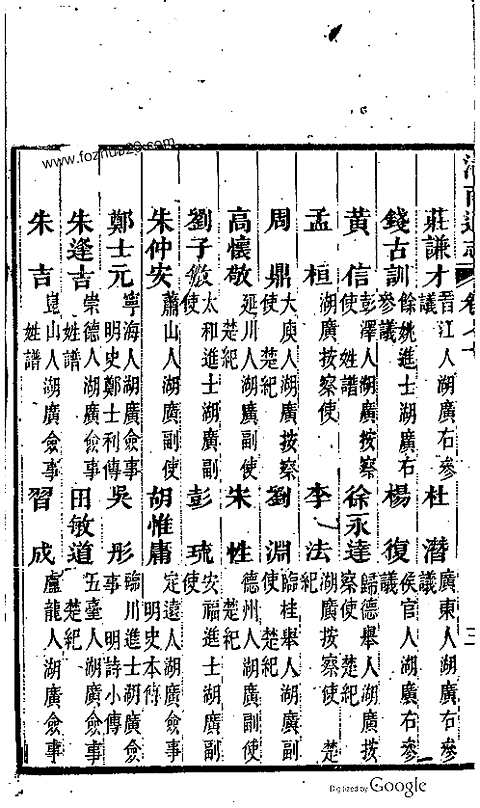 莊謙才 晉江人湖廣右參議 杜潛 廣東人湖廣右參議
錢古訓 餘姚進士湖廣右參議 楊復 侯官人湖廣右參議
黃信 彭澤人湖廣按察使 姓譜 徐永達 歸德舉人湖廣按察使 楚紀
孟桓 湖廣按察使 李法 湖廣按察使 楚紀
周鼎 大庾人湖廣按察使 楚紀 劉淵 臨桂舉人湖廣副使 楚紀
高懷敬 延川人湖廣副使 楚紀 朱性 德州人湖廣副使 楚紀
劉子 太和進士湖廣副使 彭琉 安福進士湖廣副使
朱仲安 蕭山人湖廣副使 胡惟庸 定遠人湖廣僉事 明史本傳
鄭士元 寧海人湖廣僉事 明史鄭士利傳 吳彤 臨川進士湖廣僉事 明詩小傳
朱逢吉 崇德人湖廣僉事 姓譜 田敏道 五臺人湖廣僉事 楚紀
朱吉 崑山人湖廣僉事 姓譜 習成 盧龍人湖廣僉事
三
www.fozhu920.com
Digitized by Google